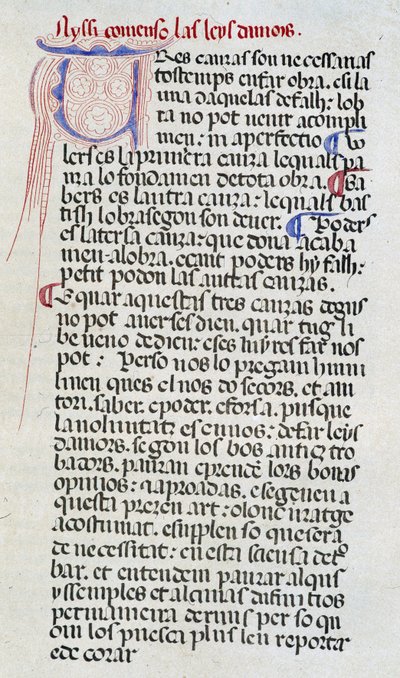 Ayssi comenso las leys damors.
Tres cauzas son necessarias
tostemps en far obra. e si la
una daquelas defalh: lob
ra no pot venir acompli
men: ni a perfectio ¶ Vo
lers es la primera cauza lequals pa
uza lo fondamen de tota obra. ¶ Sa
bers es lautra cauza: lequals bas
tish lobra segon son dever. ¶ Poders
es la tersa cauza: que dona acaba
men alobra. e cant poders hy falh:
petit podon las autras cauzas.
¶ E quar aquestas tres cauzas degus
no pot aver ses dieu. quar tug li
be veno de dieu: e ses luy res far nos
pot: Per so nos lo pregam humil
men ques el nos do secors. et aiu
tori. saber. e poder. e forsa. pus que
la voluntatz es en nos: de far leys
damors. segon los bos anticz tro
badors. pauzan e prendẽ lors bonas
opinios: ⁊ aproadas. e seguen a
questa prezen art: o lonc uzatge
acostumat. e supplen so que sera
de necessitat: en esta sciensa de tro
bar. et entendem pauzar alqus
yssemples et alcunas diffinitios
per maniera de rims per so qu
om los puesca plus leu reporta
e de corar